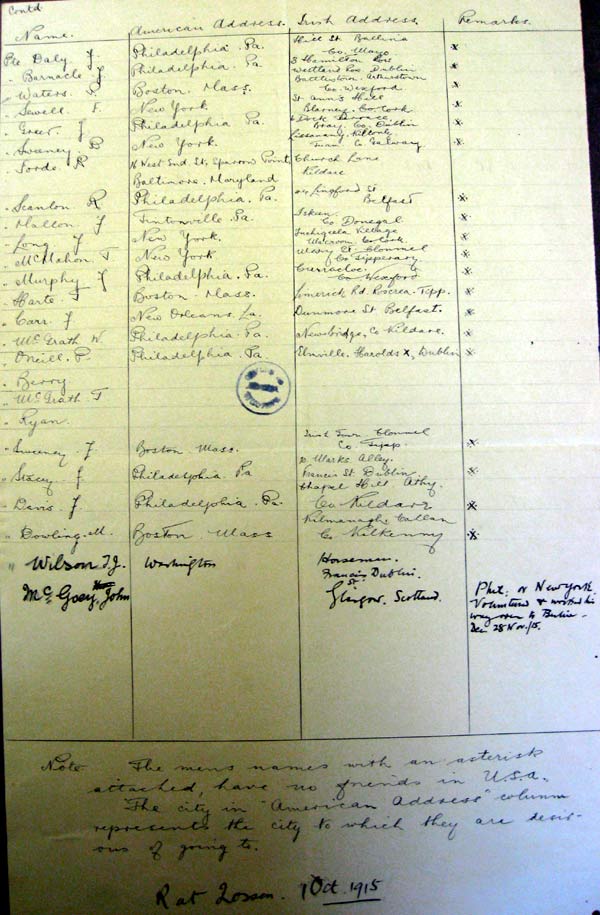 Contd
Name. American Address. Irish Address. Remarks.
Pte Daly. J. Philadelphia. Pa. Hill St Ballina Co. Mayo x
" Barnacle J Philadelphia. Pa. 3 Hamilton Row Westland Row Dublin x
" Waters. Boston. Mass. Battlestown. Arthurstown Co. Wexford x
" Sewell. F. New York St Ann's Hill Blarney. Co. Cork x
" Greer. J Philadelphia Pa. Dock Terrace Bray. Co. Dublin x
" Sweeney P New York. Tuam Co Galway x
" Forde. R West End. St, Sparrow Point Baltimore. Maryland Church Lane Kildare
" Scanlon R Philadelphia. Pa. St Belfast x
" Mallon J Tintonville. Pa. Co Donegal x
" Long. J New York. Inchigeela Village Macroom. Co. Cork x
" McMahon. T New York Clonmel Co. Tipperary x
" Murphy J Philadelphia. Pa. Curracloe. Co Wexford x
" Harte. J Boston. Mass. Limerick Rd. Roscrea. Tipp. x
" Carr. J New Orleans. La. Dunmore St Belfast. x
" McGrath W. Philadelphia. Pa. Newbridge, Co Kildare. x
" Oneill. P. Philadelphia. Pa. Harolds X, Dublin x
" Berry
" McGrath T
" Ryan.
" Sweeney J. Boston Mass. Clonmel Co. Tipp. x
" Stacey J Philadelphia. Pa Marks Alley. Francis St. Dublin x
" Davis J. Philadelphia. Pa. Chapel Hill. Athy. Co Kildare x
" Dowling. M. Boston Mass Kilmanagh, Callan Co Kilkenny x
" Wilson T.J. Washington Francis St Dublin.
McGoey John Glasgow. Scotland. Phil. or New York.
Volunteered & worked his
way over to Berlin -
Dec 28 Nov./15.
Note The mens names with an asterisk
attached, have no friends in U.S.A.
The city in "American Address" column
represents the city to which they are desir-
ous of going to.
R at Zossen. 1 Oct. 1915